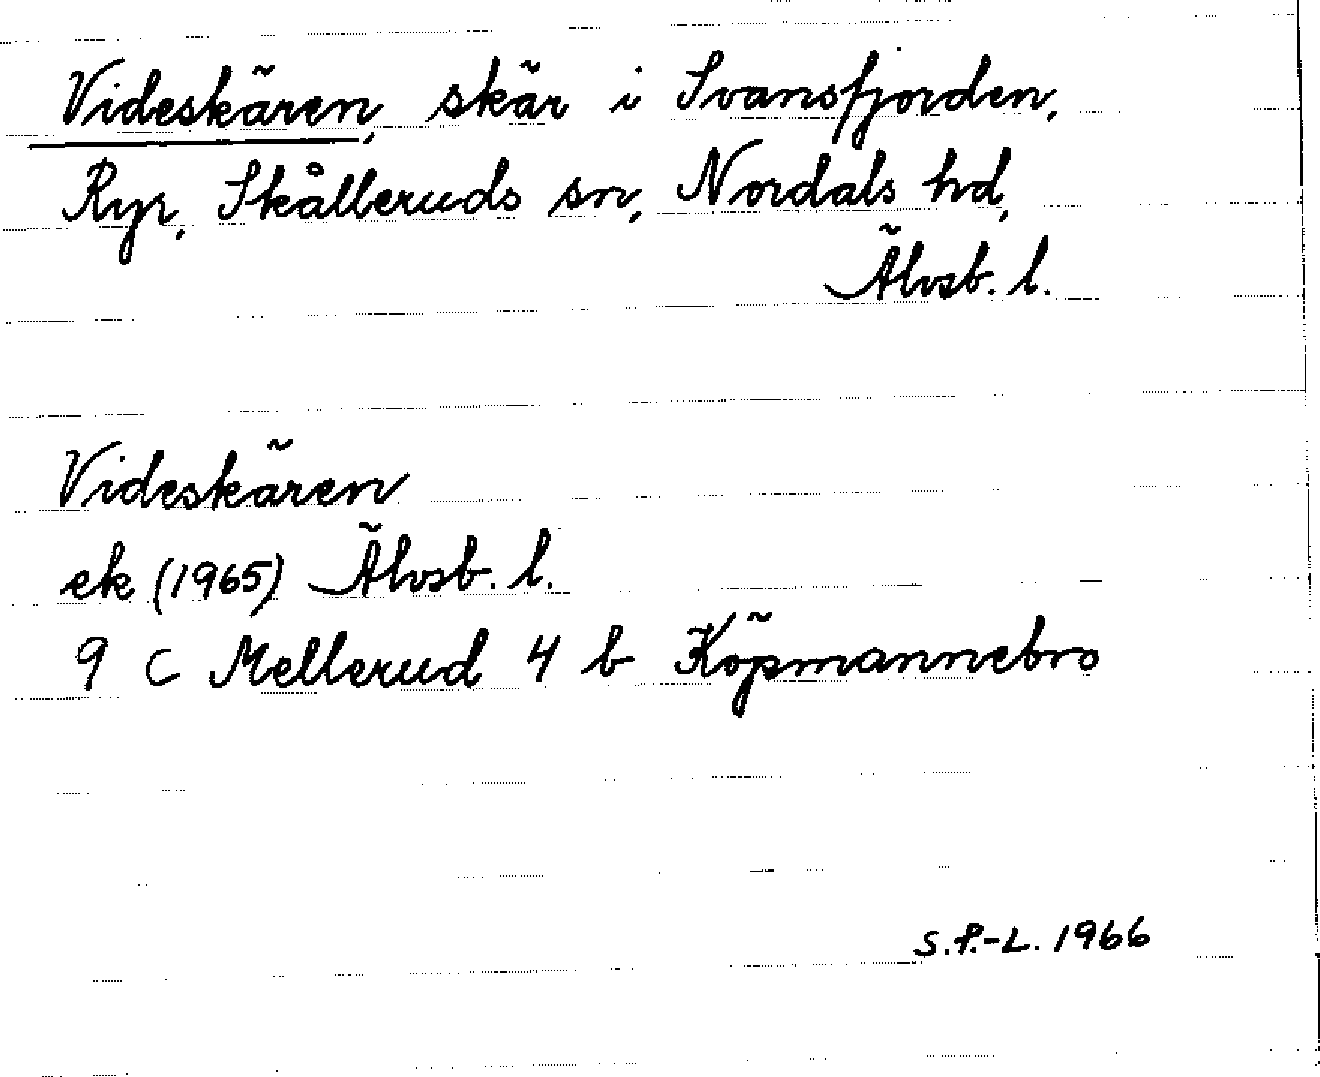 Videskären, skär i Svansfjorden,
Ryr, Skålleruds sn, Nordals hd,
Älvsb. l.
Videskären
ek (1965) Älvsb. l.
9 C Mellerud 4 b Köpmannebro
S.P.-L. 1966